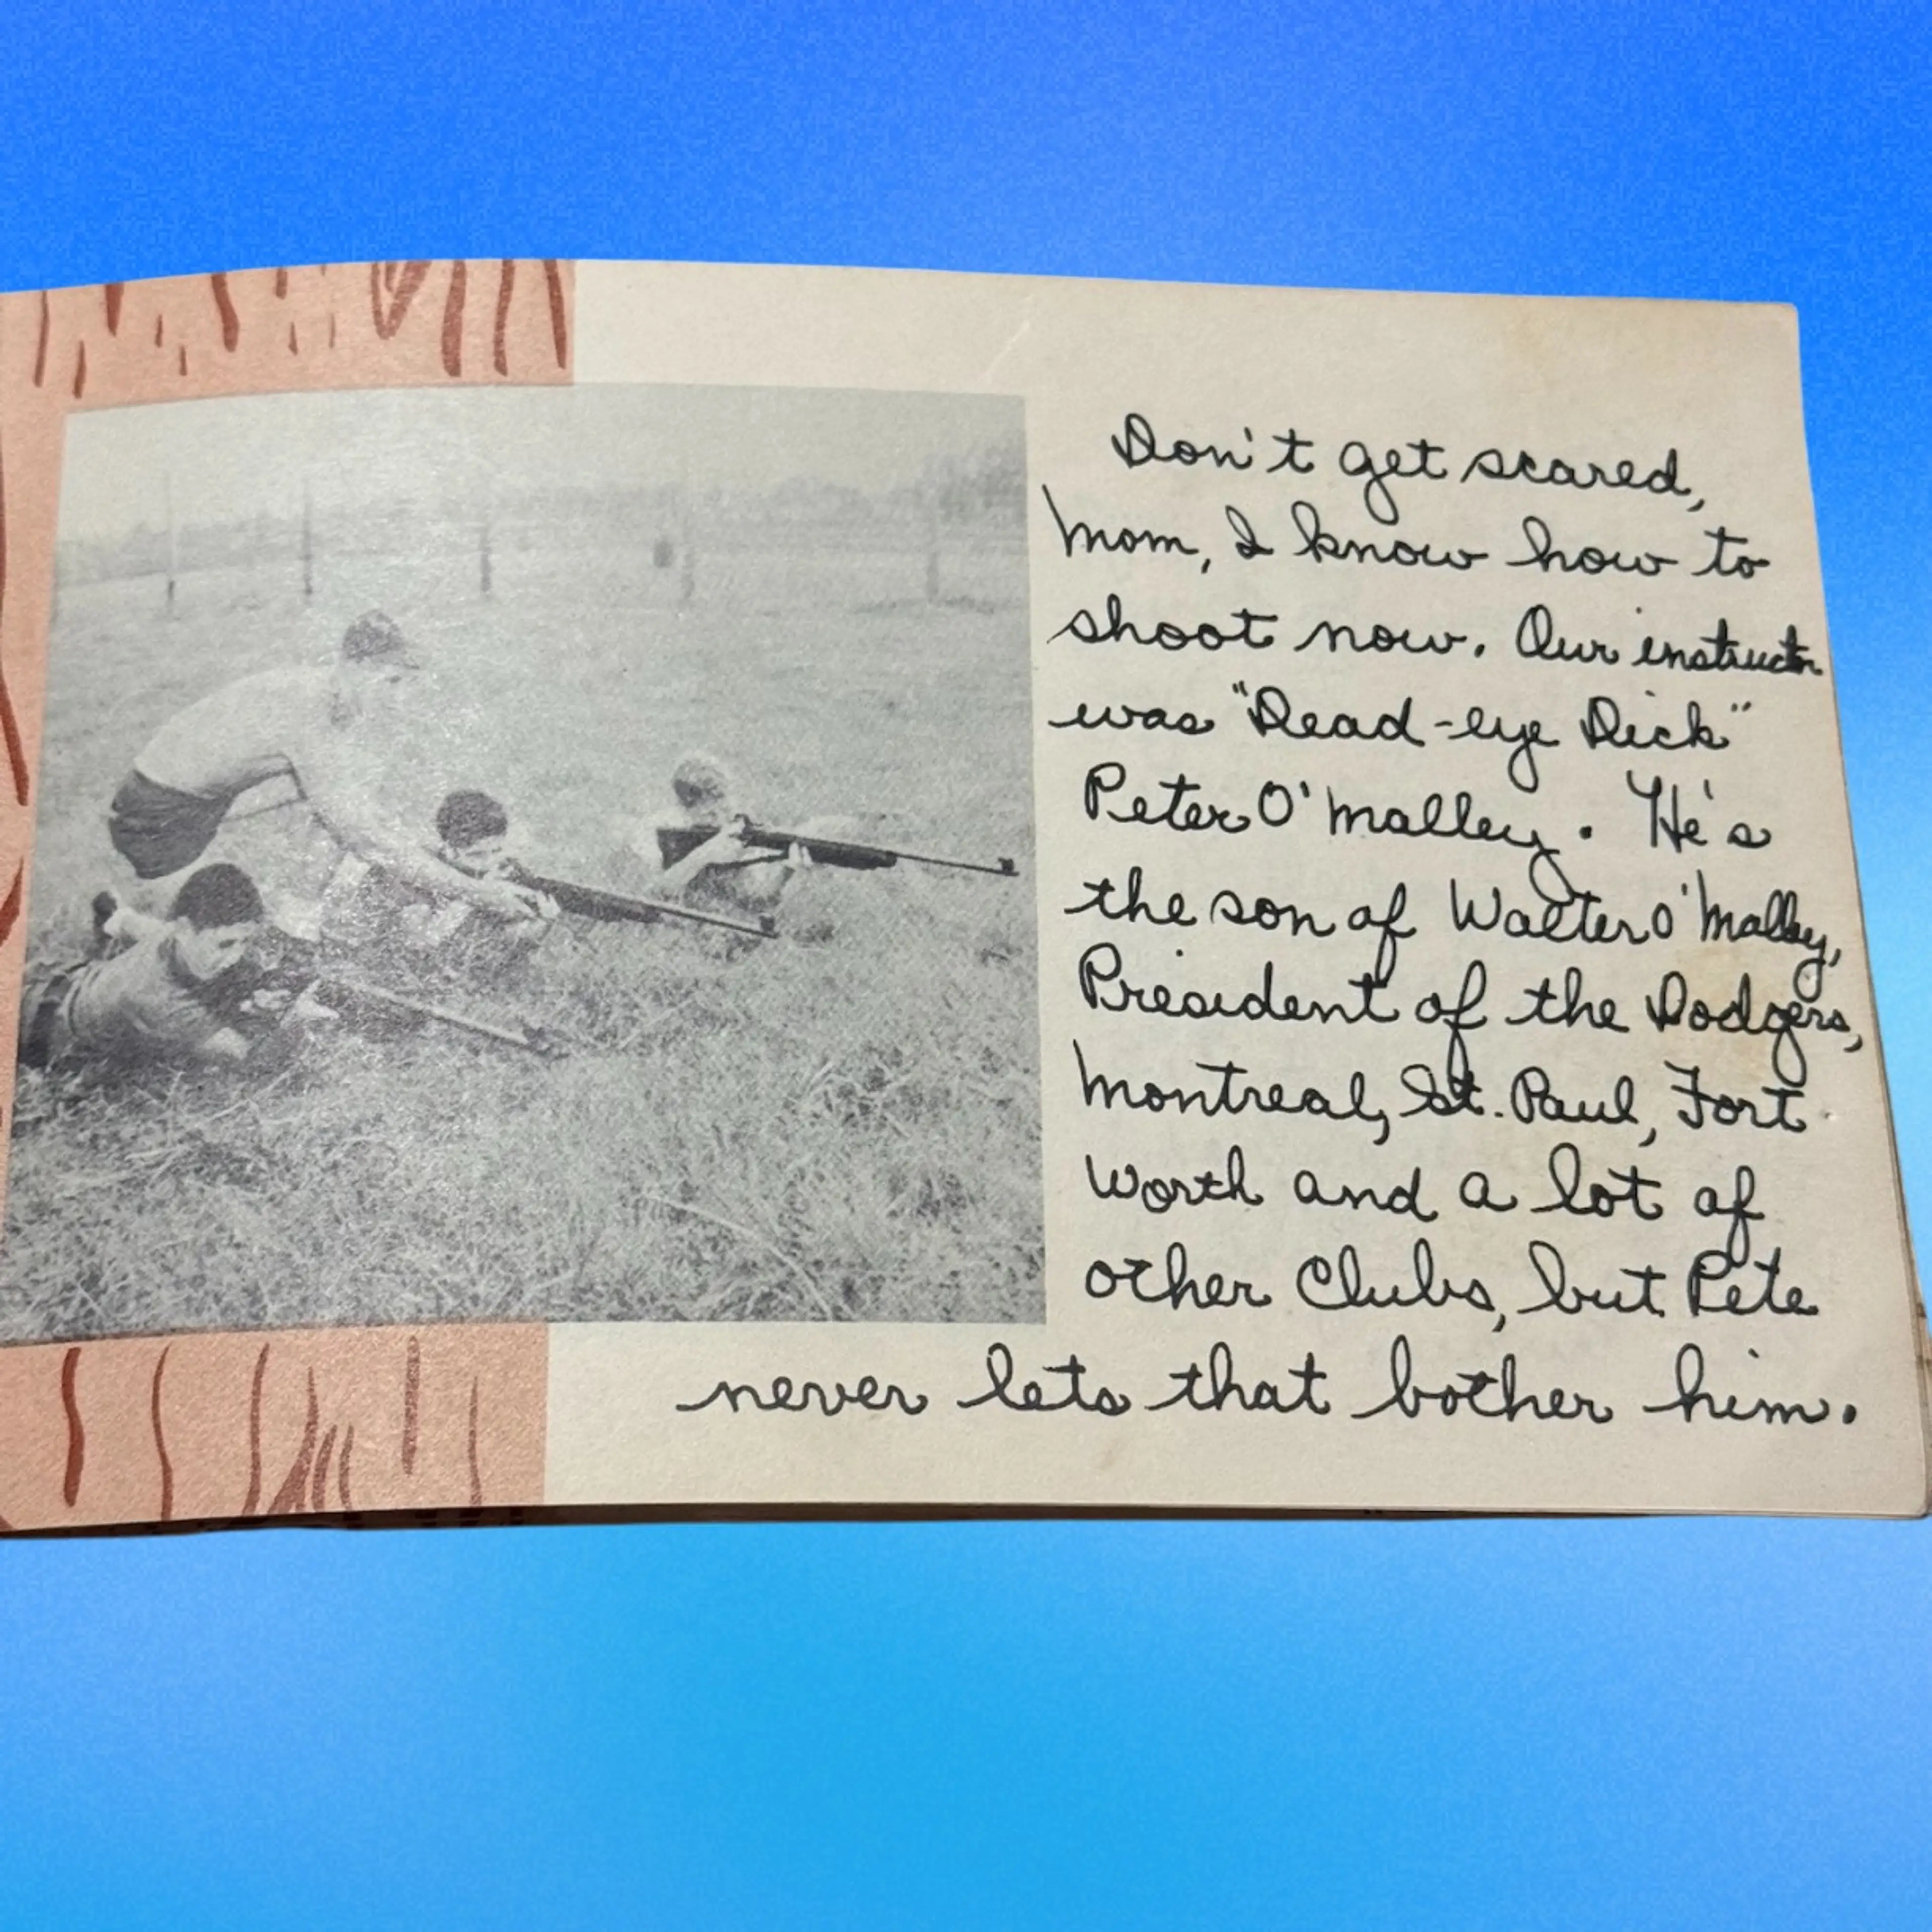 Don't get scared,
Mom, I know how to
shoot now. Our instructor
was "Dead-eye Dick"
Peter O'Malley. He's
the son of Walter O'Malley,
President of the Dodgers,
Montreal, St. Paul, Fort
Worth and a lot of
other Clubs, but Pete
never lets that bother him.